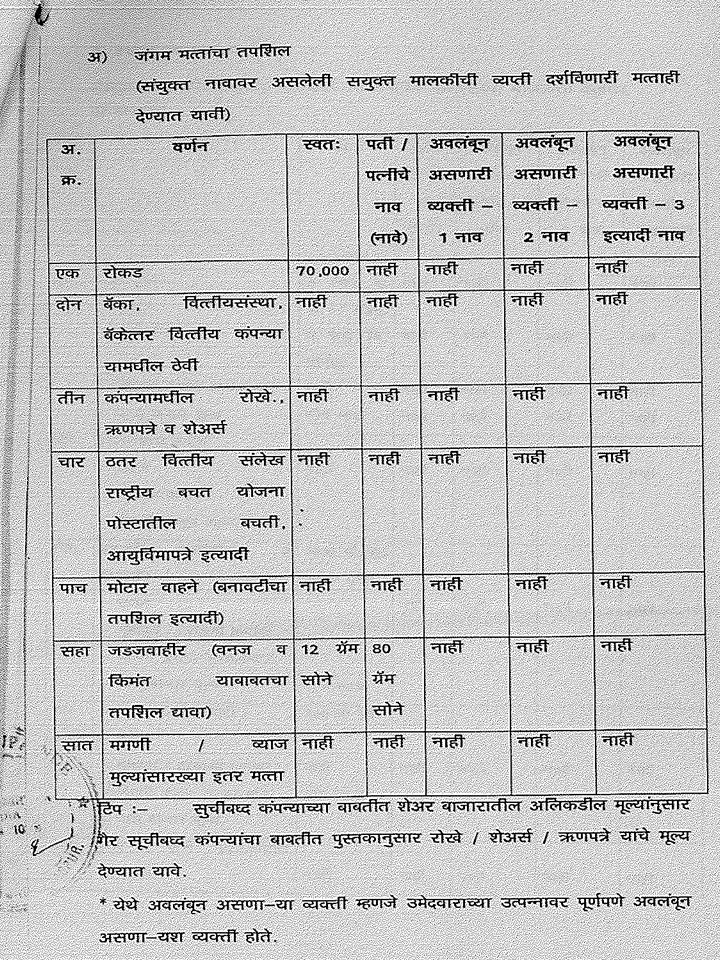 अ) जंगम मत्तांचा तपशिल
(संयुक्त नावावर असलेली सयुक्त मालकीची व्यप्ती दर्शविणारी मत्ताही
देण्यात यावी)
अ. क्र. | वर्णन | स्वतः | पती / पत्नीचे नाव (नावे) | अवलंबून असणारी व्यक्ती – 1 नाव | अवलंबून असणारी व्यक्ती – 2 नाव | अवलंबून असणारी व्यक्ती – 3 इत्यादी नाव
एक | रोकड | 70,000 | नाही | नाही | नाही | नाही
दोन | बॅका, वित्तीयसंस्था, बॅकेत्तर वित्तीय कंपन्या यामधील ठेवी | नाही | नाही | नाही | नाही | नाही
तीन | कंपन्यामधील रोखे., ऋणपत्रे व शेअर्स | नाही | नाही | नाही | नाही | नाही
चार | ठतर वित्तीय संलेख राष्ट्रीय बचत योजना पोस्टातील बचती, आयुर्विमापत्रे इत्यादी | नाही | नाही | नाही | नाही | नाही
पाच | मोटार वाहने (बनावटीचा तपशिल इत्यादी) | नाही | नाही | नाही | नाही | नाही
सहा | जडजवाहीर (वनज व किंमत याबाबतचा तपशिल द्यावा) | 12 ग्रॅम सोने | 80 ग्रॅम सोने | नाही | नाही | नाही
सात | मगणी / व्याज मुल्यांसारख्या इतर मत्ता | नाही | नाही | नाही | नाही | नाही
टिप :– सुचीबध्द कंपन्याच्या बाबतीत शेअर बाजारातील अलिकडील मूल्यांनुसार
गैर सूचीबध्द कंपन्यांचा बाबतीत पुस्तकानुसार रोखे / शेअर्स / ऋणपत्रे यांचे मूल्य
देण्यात यावे.
* येथे अवलंबून असणा–या व्यक्ती म्हणजे उमेदवाराच्या उत्पन्नावर पूर्णपणे अवलंबून
असणा–यश व्यक्ती होते.